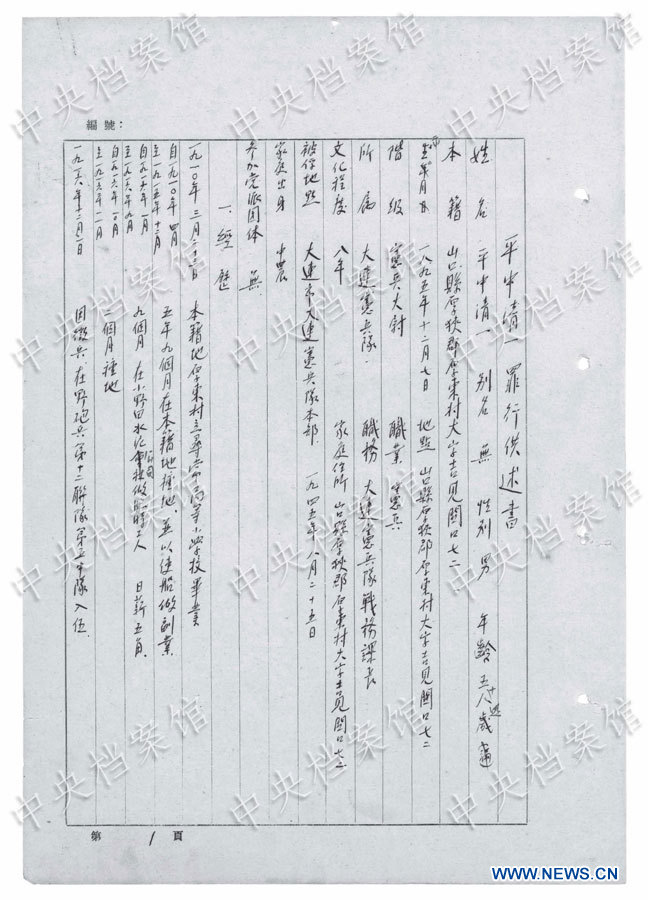 編號：
平中清一罪行供述書
姓名 平中清一 別名 無 性別 男 年齡 五十八歲
本籍 山口縣厚狹郡厚東村大字吉見関口七二
年月日 一八九五年十二月七日 地點 山口縣厚狹郡厚東村大字吉見関口七二
階級 憲兵大尉 職業 憲兵
所屬 大連憲兵隊 職務 大連憲兵隊戦務課長
文化程度 八年 家庭住所 山口縣厚狹郡厚東村大字吉見関口七二
被俘地點 大連市大連憲兵隊本部 一九四五年八月二十五日
家庭出身 中農
参加党派团体 無
一、經歷
一九一〇年三月二十 日 本籍地厚東村立尋常高等小学校畢業
自一九一〇年四月
至一九一五年十二月 五年九個月在本籍地種地，並以 做副業
自一九一六年一月
至一九一六年九月 九個月 在小野田 工人 日薪五角
自一九一六年十月
至一九一六年十一月 二個月種地
一九一六年十二月一日 因徵兵在野砲兵第十二聯隊第五中隊入伍
第 1 頁
中央档案馆
WWW.NEWS.CN